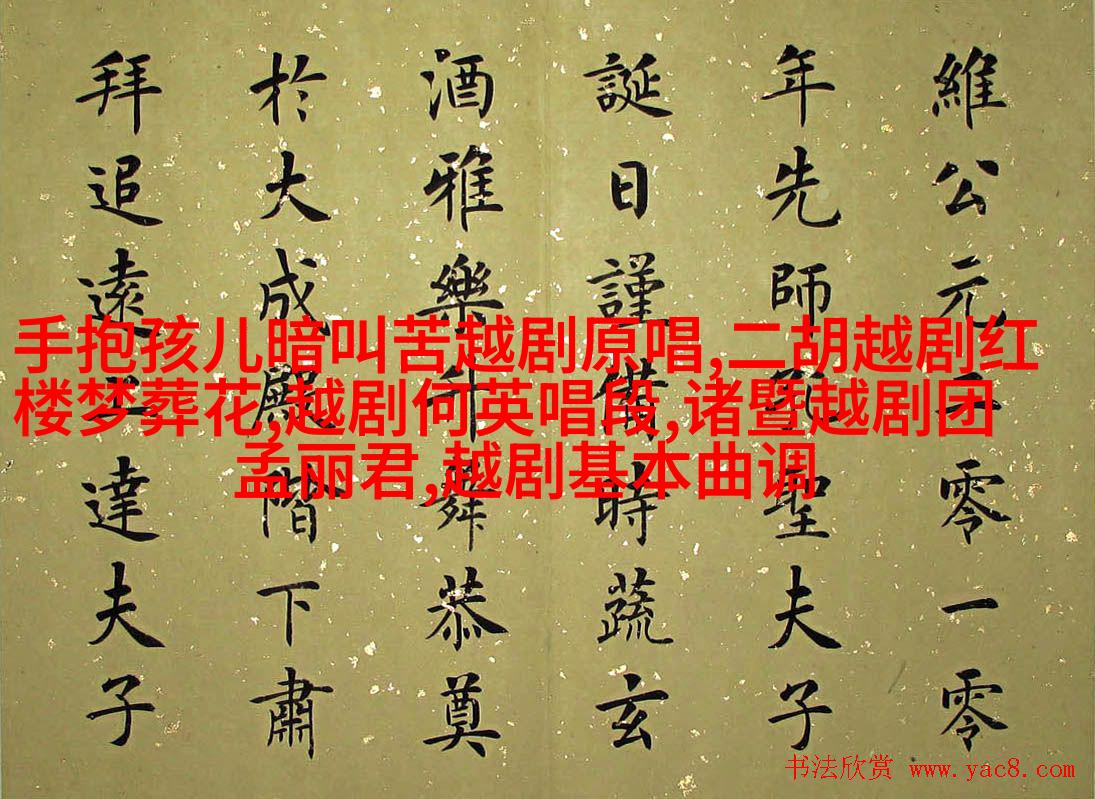 維公元零一零
年先師聖夫子
誕日謹備時蔬玄
酒雅樂舞恭奠
於大成殿階下肅
拜追遠達夫子
手抱孩儿暗叫苦越剧原唱,二胡越剧红
楼梦葬花,越剧何英唱段,诸暨越剧团
孟丽君,越剧基本曲调
书法欣赏 www.yac8.com